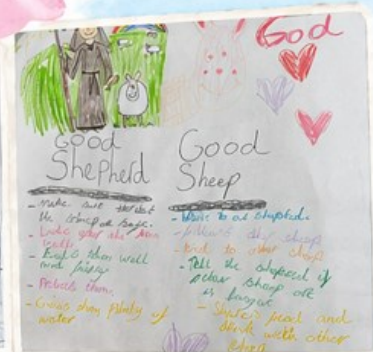 God
Good
Shepherd
Good
Sheep
- Make sure
the sheep are safe.
- Looks after the
- Feeds them well
and
- Protects them.
- Gives them plenty of
water
- Listens to a shepherd.
- follows the sheep
- kind to other sheep
- Tell the shepherd if
other sheep are
in danger
- Shares food and
drink with other
sheep